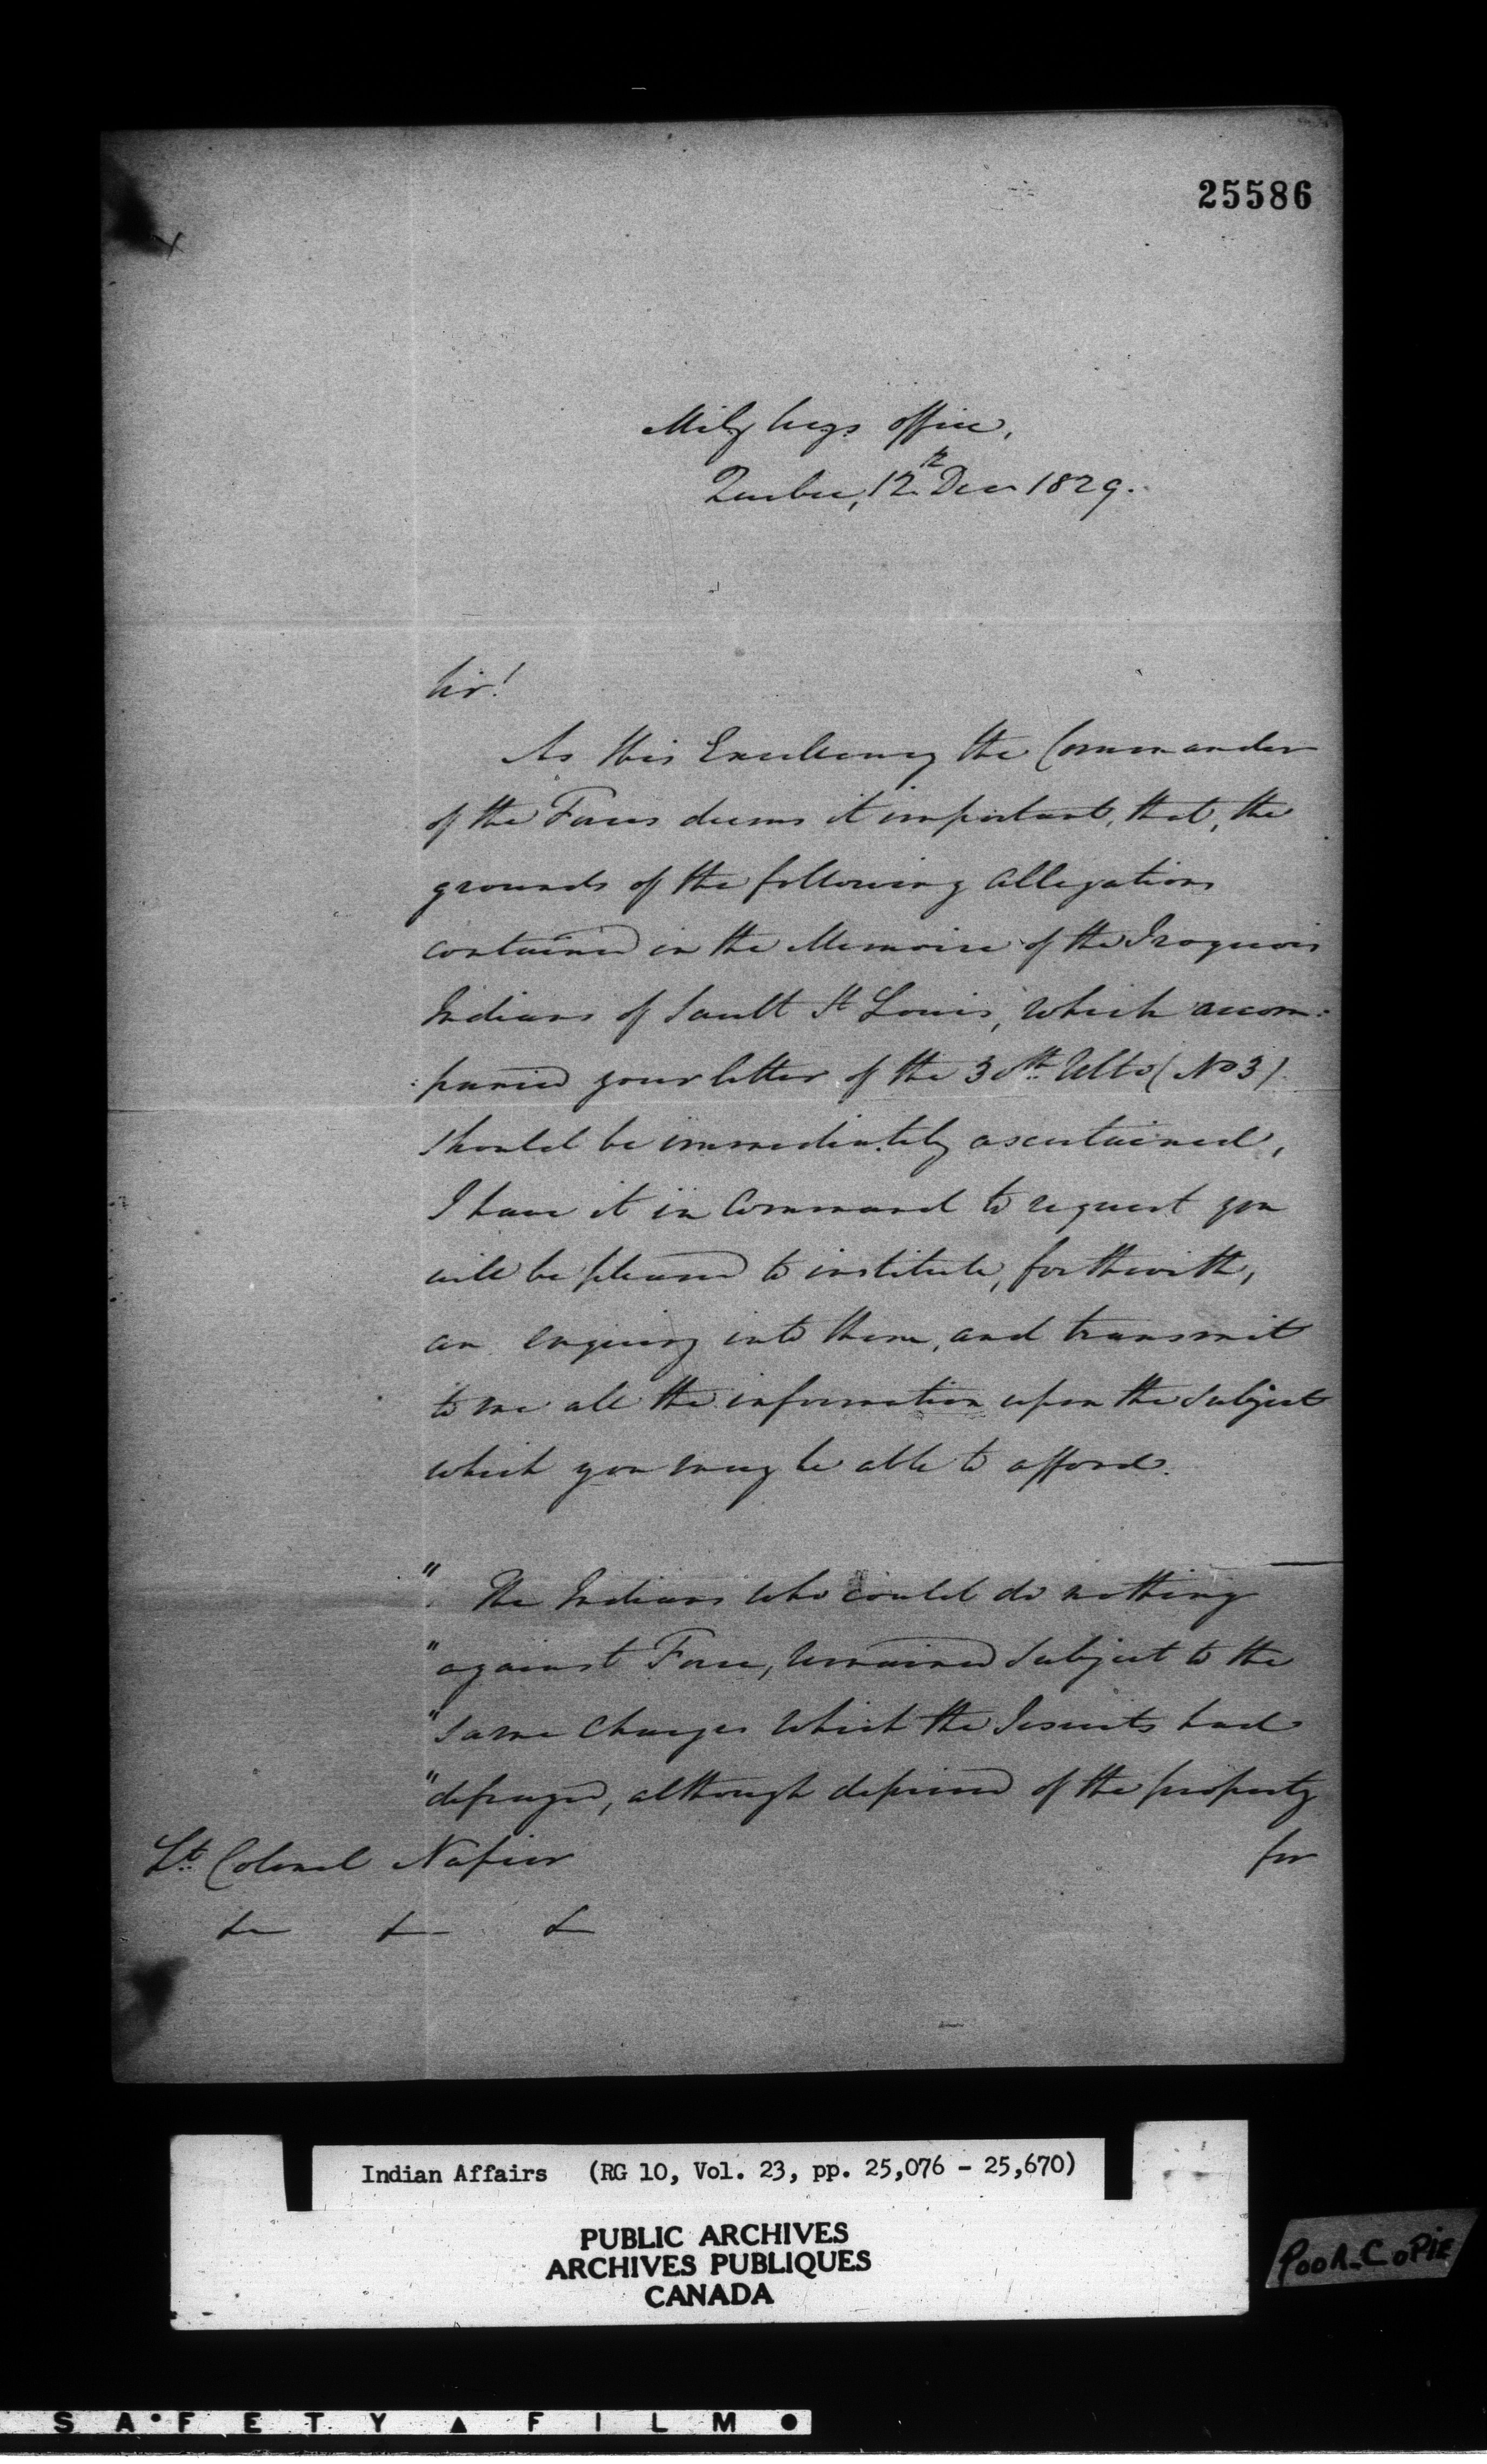 25586
Mily Secys office,
Quebec, 12th Decr 1829.
Sir!
As His Excellency the Commander
of the Forces deems it important, that, the
grounds of the following allegations
contained in the Memoire of the Iroquois
Indians of Sault St Louis, which accom:
:panied your letter of the 30th Ulto (No 3)
should be immediately ascertained,
I have it in Command to request you
will be pleased to institute, forthwith,
an enquiry into them, and transmit
to me all the information upon the subject
which you may be able to afford.
" The Indians who could do nothing
" against Force, remained subject to the
" same charges which the Jesuits had
" defrayed, although deprived of the property
for
Lt Colonel Napier
&c &c &c
Indian Affairs (RG 10, Vol. 23, pp. 25,076 - 25,670)
PUBLIC ARCHIVES
ARCHIVES PUBLIQUES
CANADA
POOR COPIE
SAFETY FILM